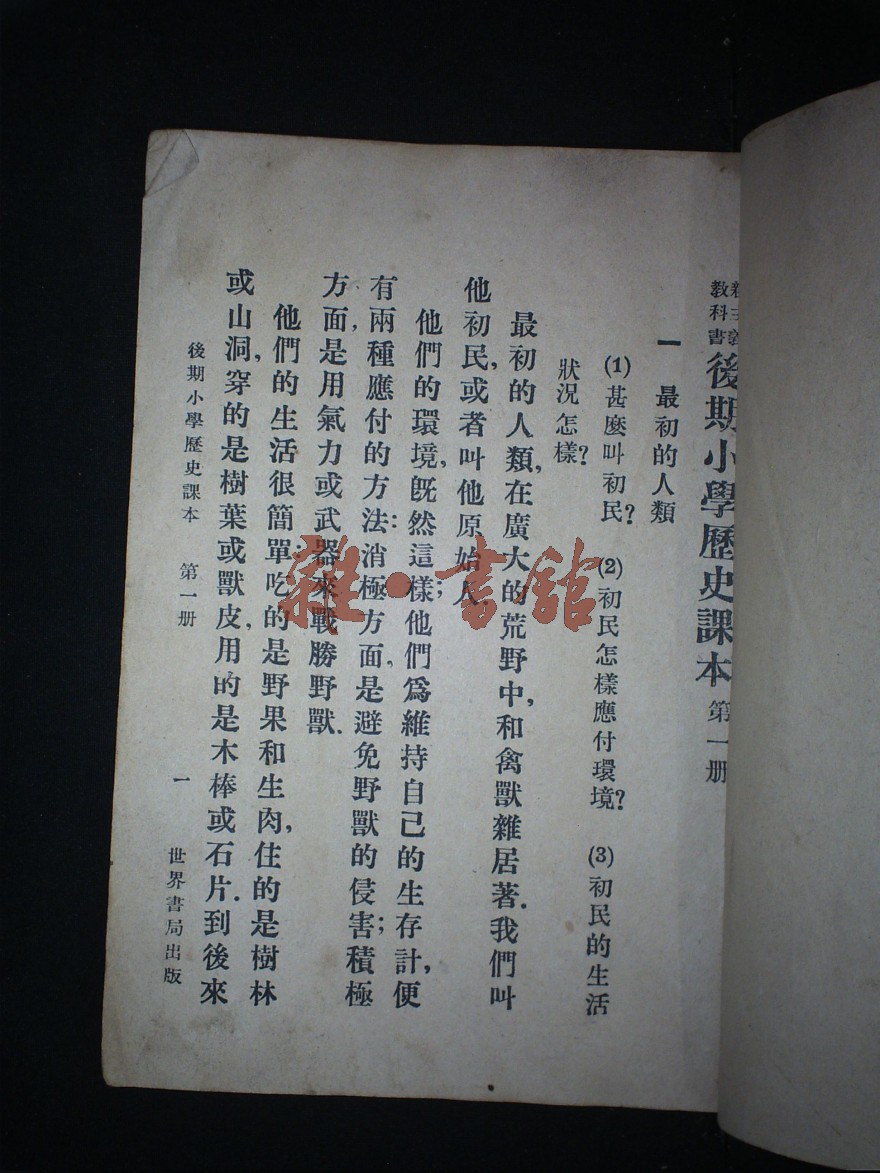 新主義
教科書
後期小學歷史課本 第一册
一 最初的人類
(1)甚麼叫初民? (2)初民怎樣應付環境? (3)初民的生活
狀况怎樣?
最初的人類,在廣大的荒野中,和禽獸雜居著.我們叫
他初民,或者叫他原始人.
他們的環境,旣然這樣;他們爲維持自己的生存計,便
有兩種應付的方法:消極方面,是避免野獸的侵害;積極
方面,是用氣力或武器來戰勝野獸.
他們的生活很簡單:吃的是野果和生肉,住的是樹林
或山洞,穿的是樹葉或獸皮,用的是木棒或石片.到後來
後期小學歷史課本 第一册 一 世界書局出版
雜·書館